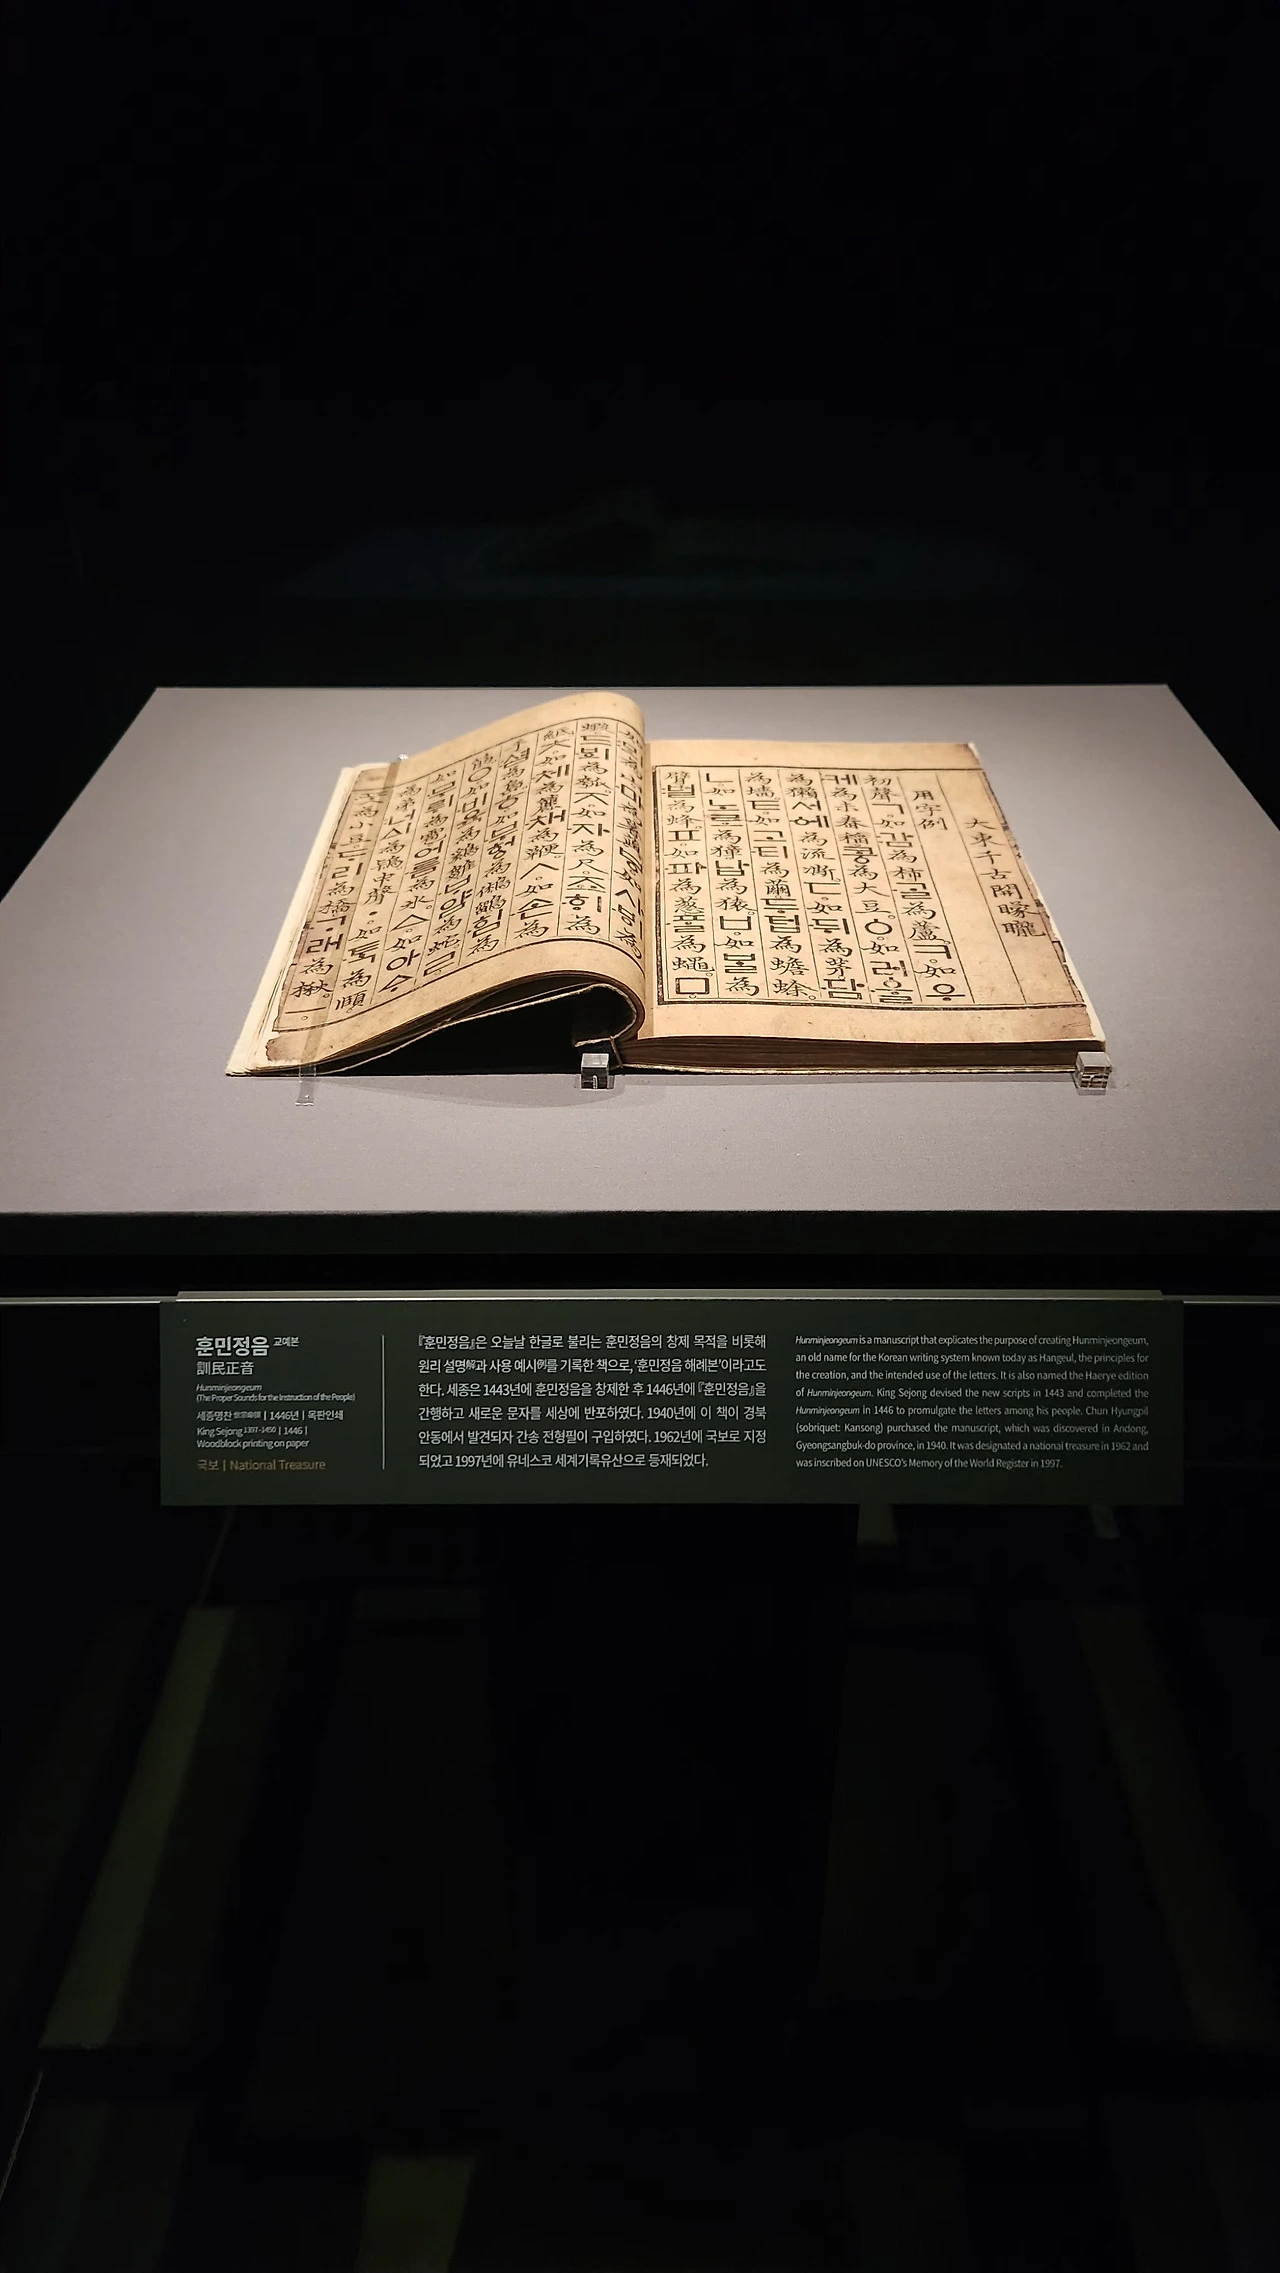 大東千古開矇矓
用字例
初聲ㄱ。如감為柿。ᄀᆞᆯ為蘆。ㅋ。如우
케為未舂稻。콩為大豆。ㆁ。如러울
為獺。서에為流凘。ㄷ。如뒤為茅。담
為墻。ㅌ。如고티為繭。두텁為蟾蜍。
ㄴ。如노로為獐。납為猿。ㅂ。如ᄇᆞᆯ為
臂。벌為蜂。ㅍ。如파為葱。ᄑᆞᆯ為蠅。ㅁ。
如뫼為山。마為薯藇。ㅸ。如사ᄫᅵ為
蝦。드ᄫᅴ為瓠。ㅈ。如자為尺。죠ᄒᆡ為
紙。ㅊ。如체為籭。채為鞭。ㅅ。如손為
手。셤為島。ㅎ。如부헝為鵂鶹。힘為
筋。ㅇ。如비육為鷄雛。ᄇᆞ얌為蛇。ㄹ。
如무뤼為雹。어름為氷。ㅿ。如아ᅀᆞ
為弟。너ᅀᅵ為鴇。中聲ㆍ。如ᄐᆞᆨ為頤。
ᄑᆞᆺ為小豆。ᄃᆞ리為橋。ᄀᆞ래為楸。
훈민정음
訓民正音
Hunminjeongeum
(The Proper Sounds for the Instruction of the People)
세종명찬 | 1446년 | 목판인쇄
King Sejong 1397-1450 | 1446 |
Woodblock printing on paper
국보 | National Treasure
『훈민정음』은 오늘날 한글로 불리는 훈민정음의 창제 목적을 비롯해
원리 설명解과 사용 예시例를 기록한 책으로, '훈민정음 해례본'이라고도
한다. 세종은 1443년에 훈민정음을 창제한 후 1446년에 『훈민정음』을
간행하고 새로운 문자를 세상에 반포하였다. 1940년에 이 책이 경북
안동에서 발견되자 간송 전형필이 구입하였다. 1962년에 국보로 지정
되었고 1997년에 유네스코 세계기록유산으로 등재되었다.
Hunminjeongeum is a manuscript that explicates the purpose of creating Hunminjeongeum,
an old name for the Korean writing system known today as Hangeul, the principles for
the creation, and the intended use of the letters. It is also named the Haerye edition
of Hunminjeongeum. King Sejong devised the new scripts in 1443 and completed the
Hunminjeongeum in 1446 to promulgate the letters among his people. Chun Hyungpil
(sobriquet: Kansong) purchased the manuscript, which was discovered in Andong,
Gyeongsangbuk-do province, in 1940. It was designated a national treasure in 1962 and
was inscribed on UNESCO's Memory of the World Register in 1997.